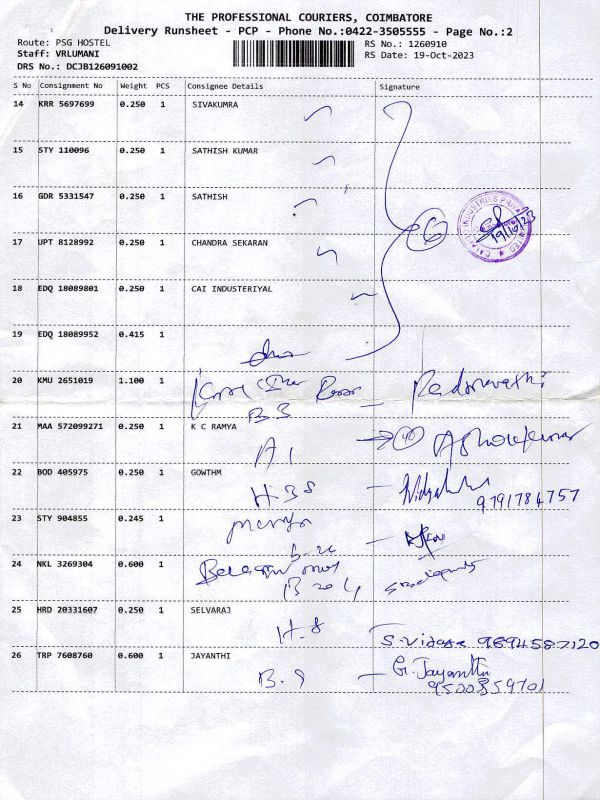 THE PROFESSIONAL COURIERS, COIMBATORE
Delivery Runsheet - PCP - Phone No.:0422-3505555 - Page No.:2
Route: PSG HOSTEL
RS No.: 1260910
Staff: VRLUMANI
RS Date: 19-Oct-2023
DRS No.: DCJB126091002
S No Consignment No Weight PCS Consignee Details Signature
14 KRR 5697699 0.250 1 SIVAKUMRA
15 STY 110096 0.250 1 SATHISH KUMAR
16 GDR 5331547 0.250 1 SATHISH
6
19/10/23
17 UPT 8128992 0.250 1 CHANDRA SEKARAN
18 EDQ 18089801 0.250 1 CAI INDUSTERIYAL
19 EDQ 18089952 0.415 1
20 KMU 2651019 1.100 1
B3 -
21 MAA 572099271 0.250 1 K C RAMYA
A1 Ashokkumar
22 BOD 405975 0.250 1 GOWTHM
H-38 -
9791784757
23 STY 904855 0.245 1
24 NKL 3269304 0.600 1
B 204
25 HRD 20331607 0.250 1 SELVARAJ
H-8 S. Vidaya 9894587120
26 TRP 7608760 0.600 1 JAYANTHI
B.9 - G. Jayanthi
9500859701